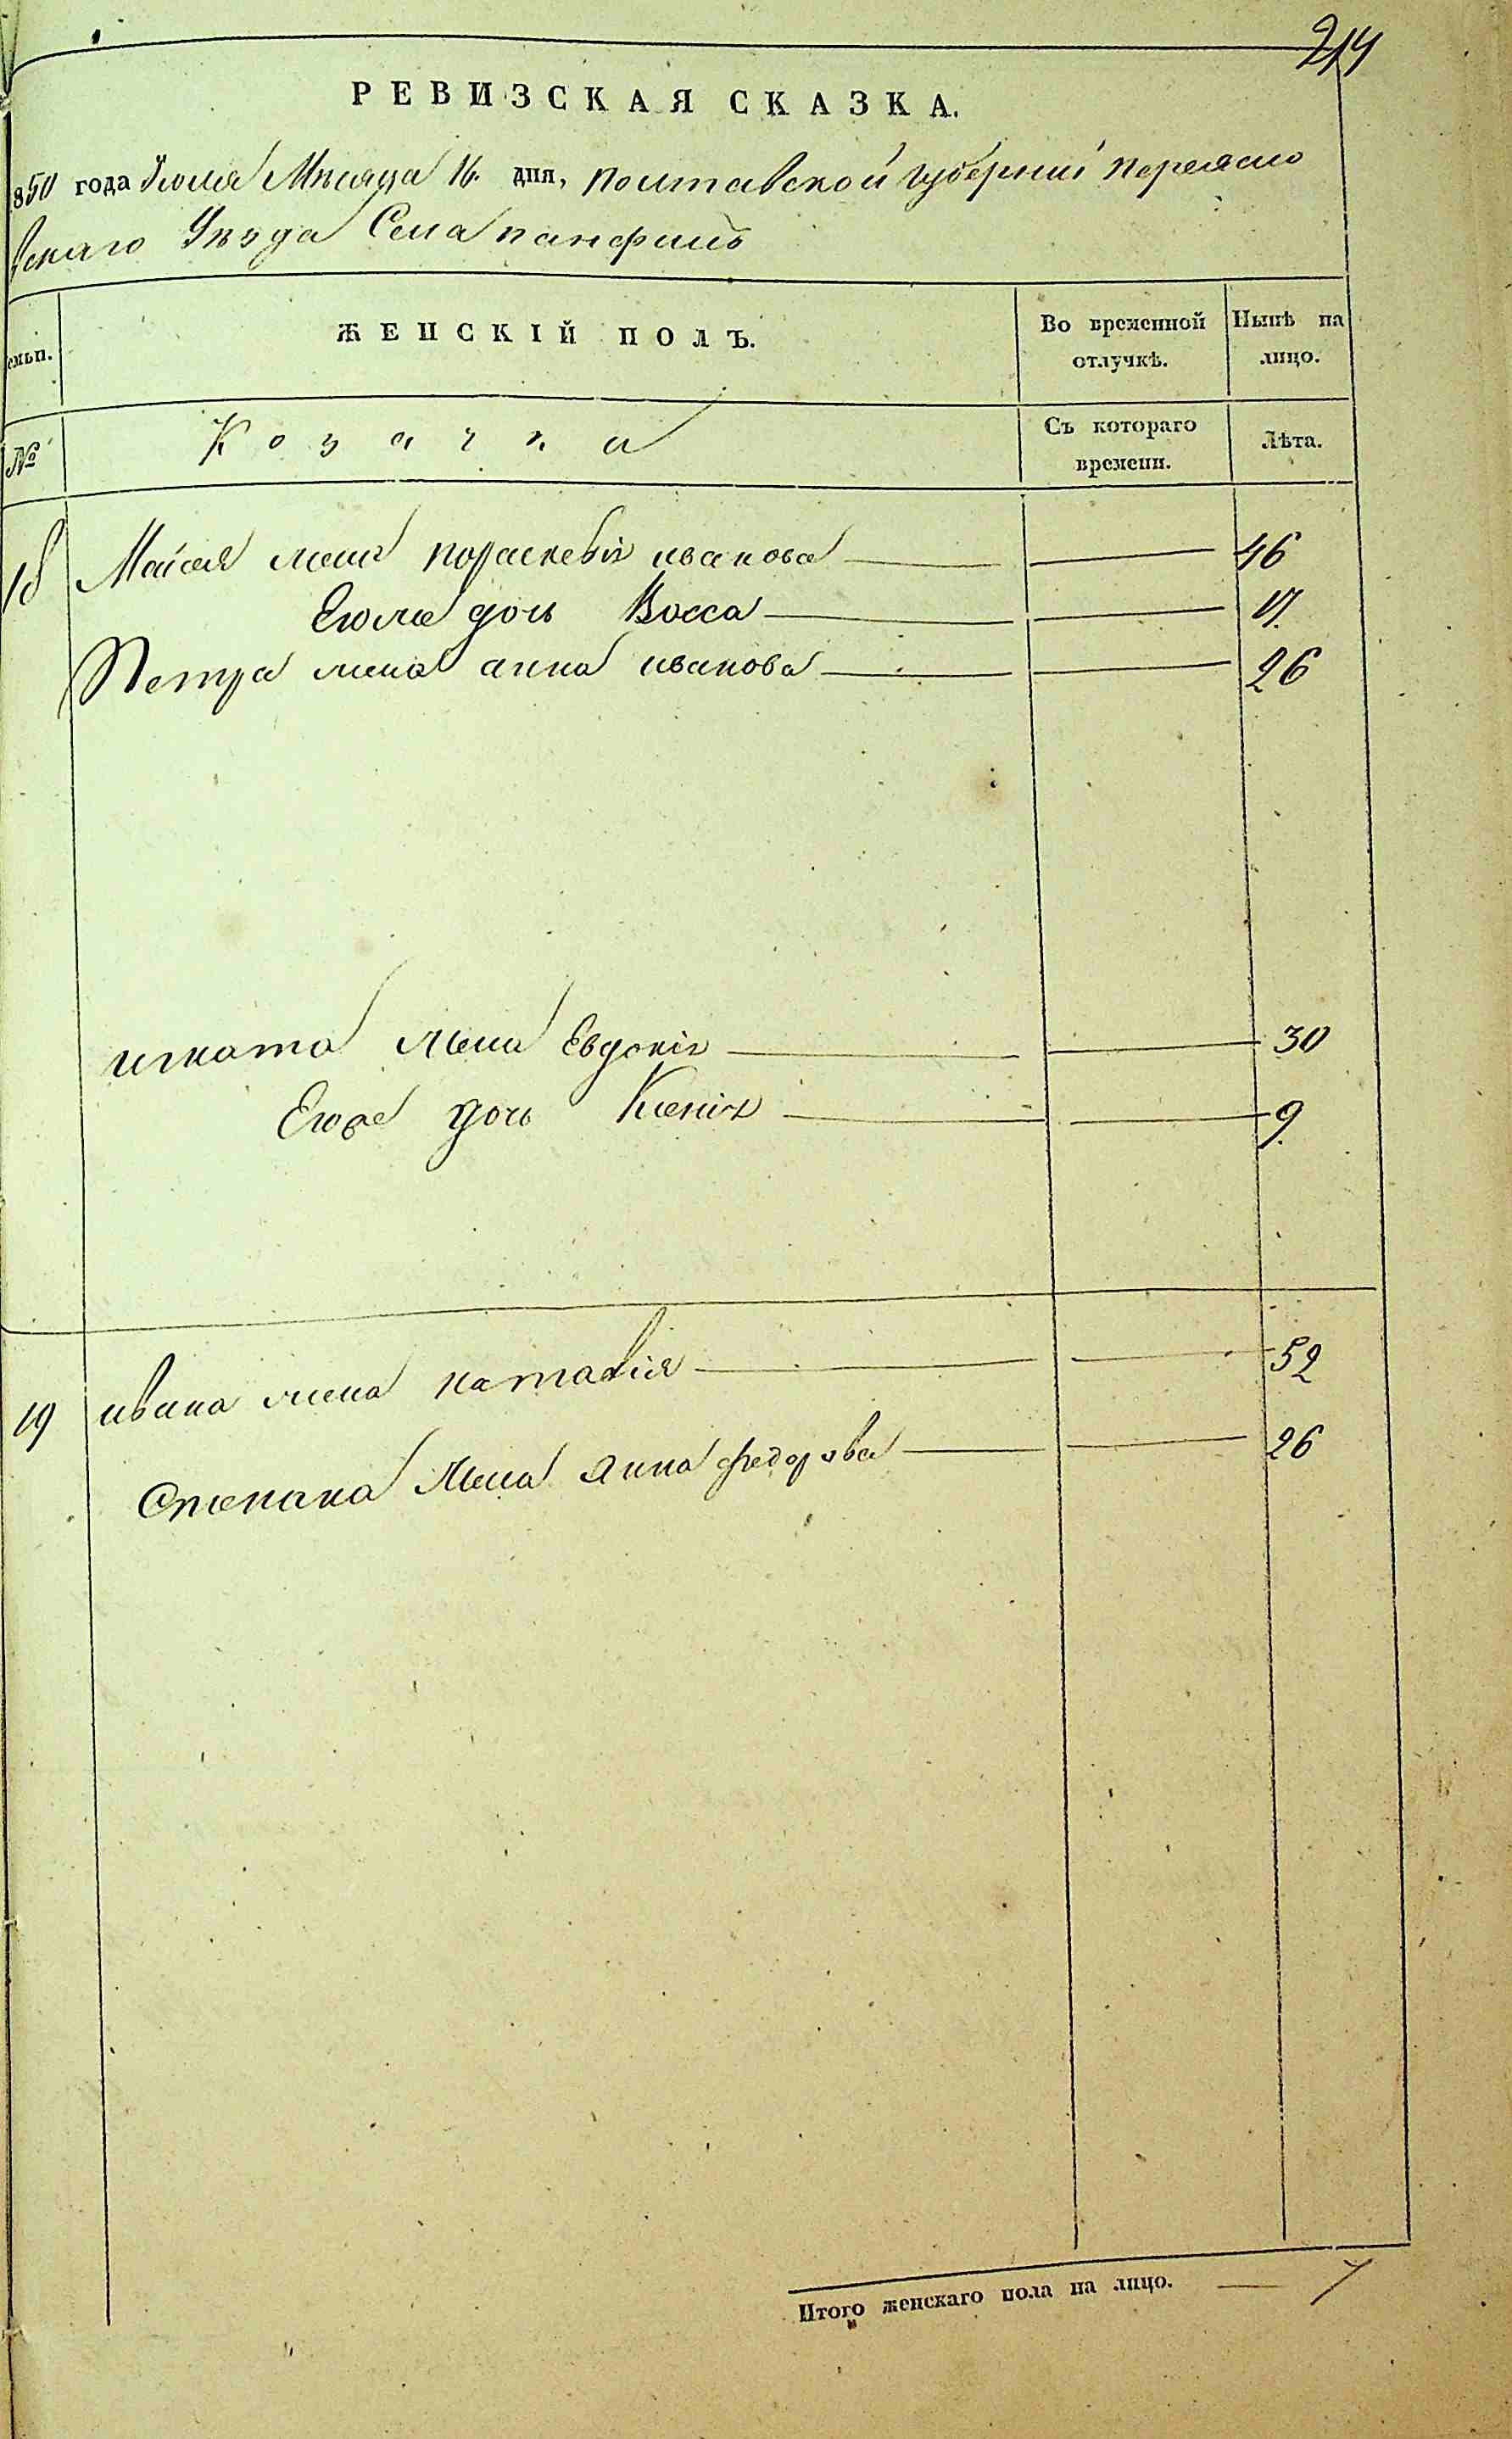 214
РЕВИЗСКАЯ СКАЗКА.
850 года Июля Мѣсяца 16. дня, полтавской губерніи переясло
вскаго Уѣзда Села панфилъ
емьи. ЖЕНСКІЙ ПОЛЪ. Во временной отлучкѣ. Нынѣ на лицо.
№ Козачки Съ котораго времени. Лѣта.
18 Мойсея жена пораскевія иванова 46
Егоже дочь Васса 17.
Петра жена анна иванова 26
игната жена Евдокія 30
Егоже дочь Ксенія 9.
19 ивана жена наталія 52
Степана жена Анна федорова 26
Итого женскаго пола на лицо. 7